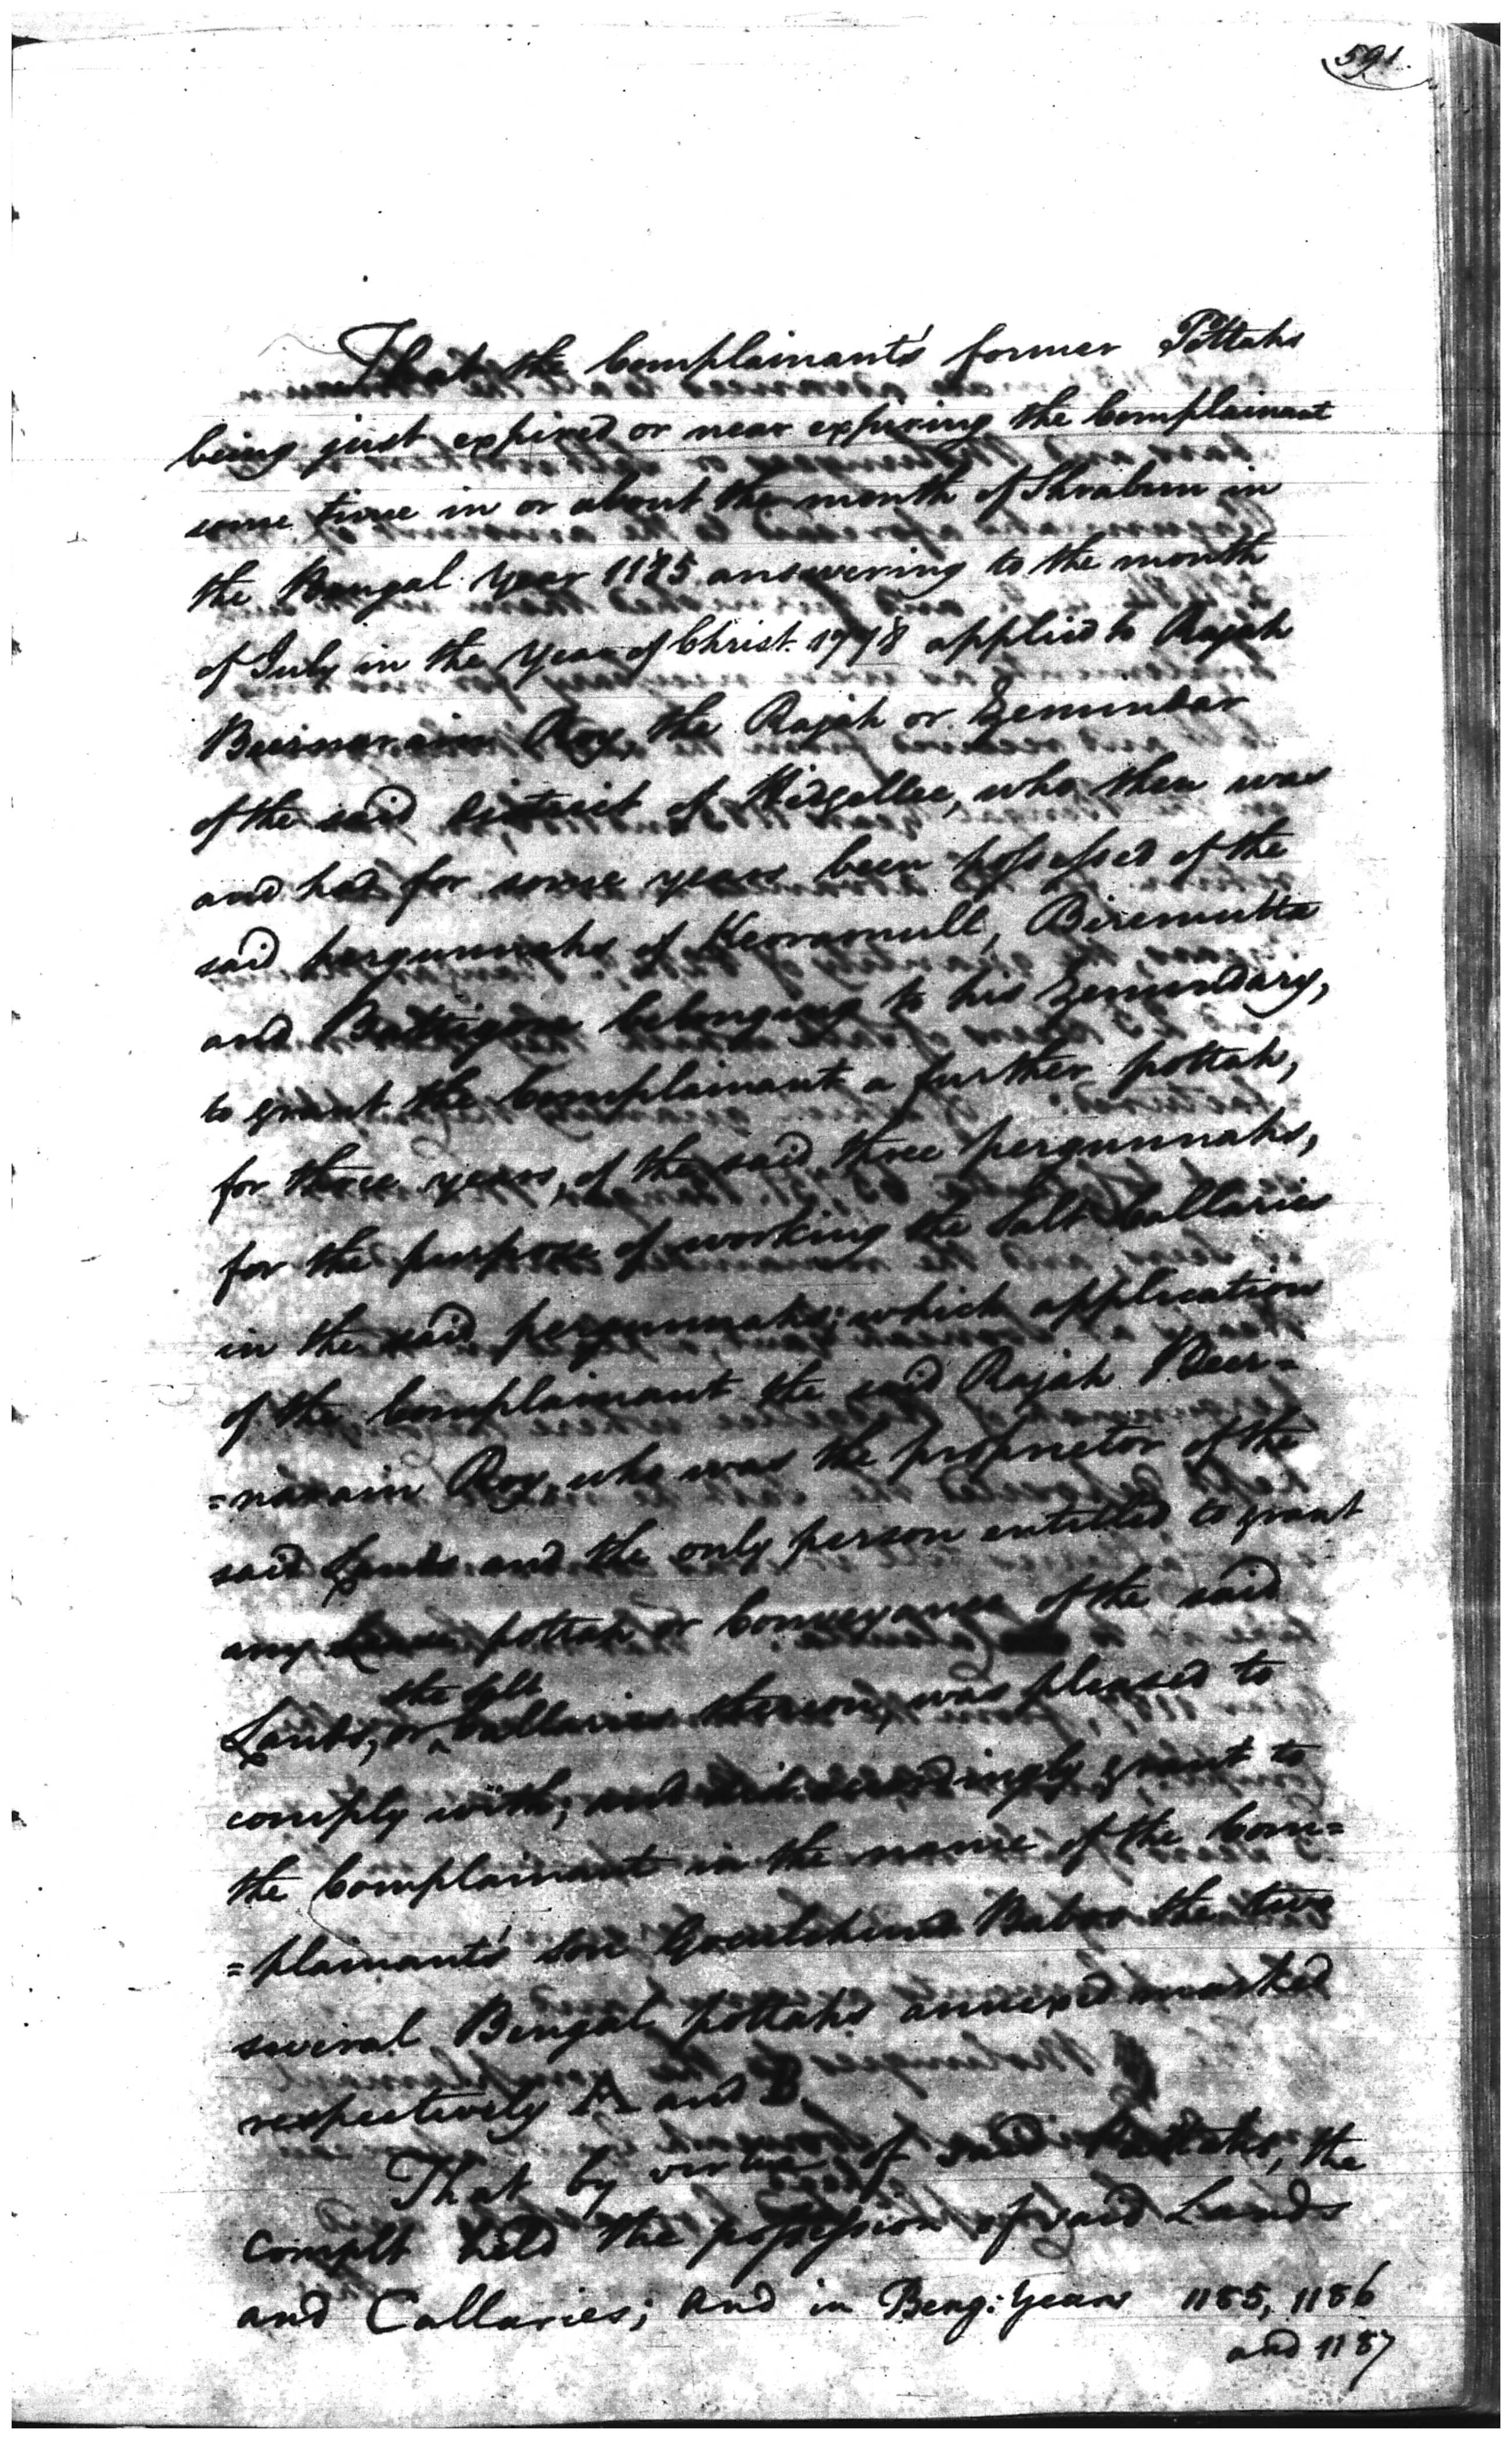 591.
That the Complainant's former Pottahs
being just expired or near expiring the Complainant
some time in or about the month of Shrabun in
the Bengal Year 1185 answering to the month
of July in the Year of Christ 1778 applied to Rajah
Beernarain Roy, the Rajah or Zemindar
of the said District of Hidgellee, who then was
and had for some years been possessed of the
said pergunnahs of Keoramull, Biremutta
and belonging to his Zemindary,
to grant the Complainant a further pottah,
for three years, of the said three pergunnahs,
for the purpose of working the Salt Collaries
in the said pergunnahs; which application
of the Complainant the said Rajah Beer=
=narain Roy, who was the proprietor of the
said Lands and the only person entitled to grant
any Lease pottah or Conveyance of the said
Lands, or the Salt Collaries thereon, was pleased to
comply with; and did accordingly grant to
the Complainant in the name of the Com=
=plainant's son Baboo the two
several Bengal pottahs annexed marked
respectively A and B.
That by virtue of said Pottahs, the
Complt held the possession of said Lands
and Collaries; and in Beng: Years 1185, 1186
and 1187